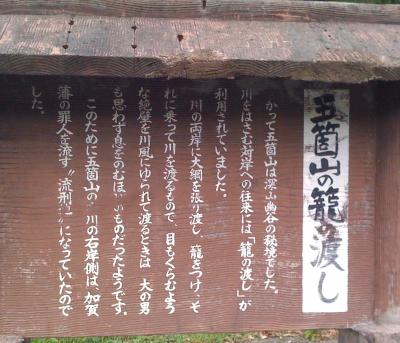 五箇山の籠の渡し
かつて五箇山は深山幽谷の秘境でした。
川をはさむ対岸への往来には、「籠の渡し」が
利用されていました。
川の両岸に大綱を張り渡し、籠をつけ、そ
れに乗って川を渡るもので、目もくらむよう
な絶壁を川風にゆられて渡るときは、大の男
も思わず息をのむほどのものだったようです。
このために五箇山の 川の右岸側は、加賀
藩の罪人を流す〝流刑 になっていたので
した。